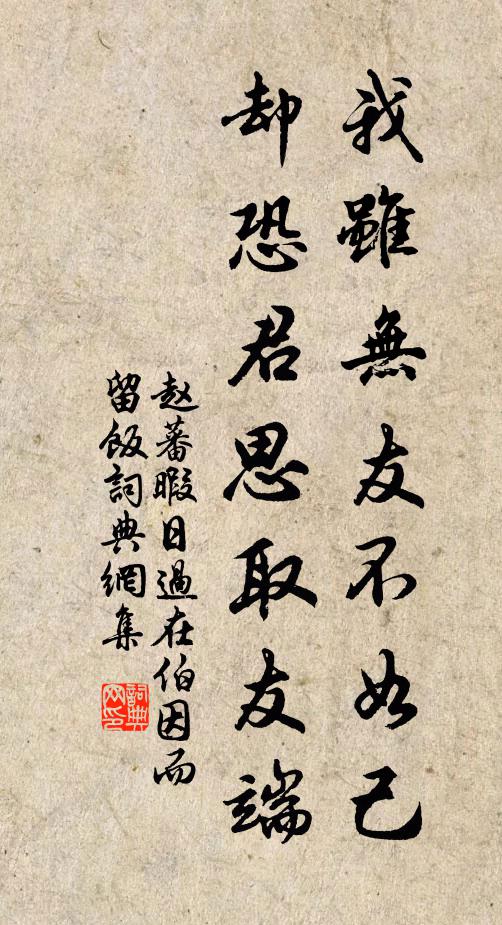 我雖無友不如己
却恐君思取友端
赵蕃暇日過在伯因而
留飯詞典網集
詞典
网印